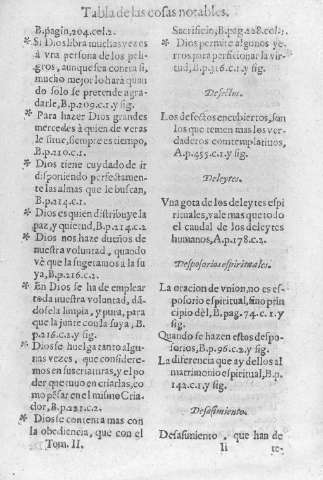 Tabla de las cosas notables.
B.pagin,204.col.2.
* Si Dios libra muchas vezes
à vna persona de los peli-
gros, aunque sea contra si,
mucho mejor lo hará quã
do solo se pretende agra-
darle, B.p.209.c.1.y sig.
* Para hazer Dios grandes
mercedes à quien de veras
le sirue, siempre es tiempo,
B.p.210.c.1.
* Dios tiene cuydado de ir
disponiendo perfectamen-
te las almas que le buscan,
B.p.214.c.1.
* Dios es quien distribuye la
paz, y quietud, B.p.214.c.2
* Dios nos haze dueños de
nuestra voluntad, quando
vè que la sugetamos a la su
ya, B.p.216.c.1.
* En Dios se ha de emplear
toda nuestra voluntad, dã-
dosela limpia, y pura, para
que la junte con la suya, B.
p.216.c.1.y sig.
* Dios se huelga tanto algu-
nas vezes, que considere-
mos en sus criaturas, y el po
der que tuuo en criarlas, co
mo pẽsar en el mismo Cria-
dor, B.p.221.c.2.
* Dios se contenta mas con
la obediencia, que con el
Tom. II.
Sacrificio, B.pag.228.col.1.
* Dios permite algunos ye-
rros, para perficionar la vir-
tud, B.p.316.c.1.y sig.
Defectos.
Los defectos encubiertos, son
los que temen mas los ver-
daderos contemplatiuos,
A.p.455.c.1.y sig.
Deleytes.
Vna gota de los deleytes espi
rituales, vale mas que todo
el caudal de los deleytes
humanos, A.p.178.c.2.
Desposorios espirituales.
La oracion de vnion, no es es-
posorio espiritual, sino prin
cipio dèl, B.pag.74.c.1.y
sig.
Quando se hazen estos despo-
sorios, B.p.96.c.2.y sig.
La diferencia que ay dellos al
matrimonio espiritual, B.p.
142.c.1.y sig.
Desasimiento.
Desasimiento, que han de
Ii
te-